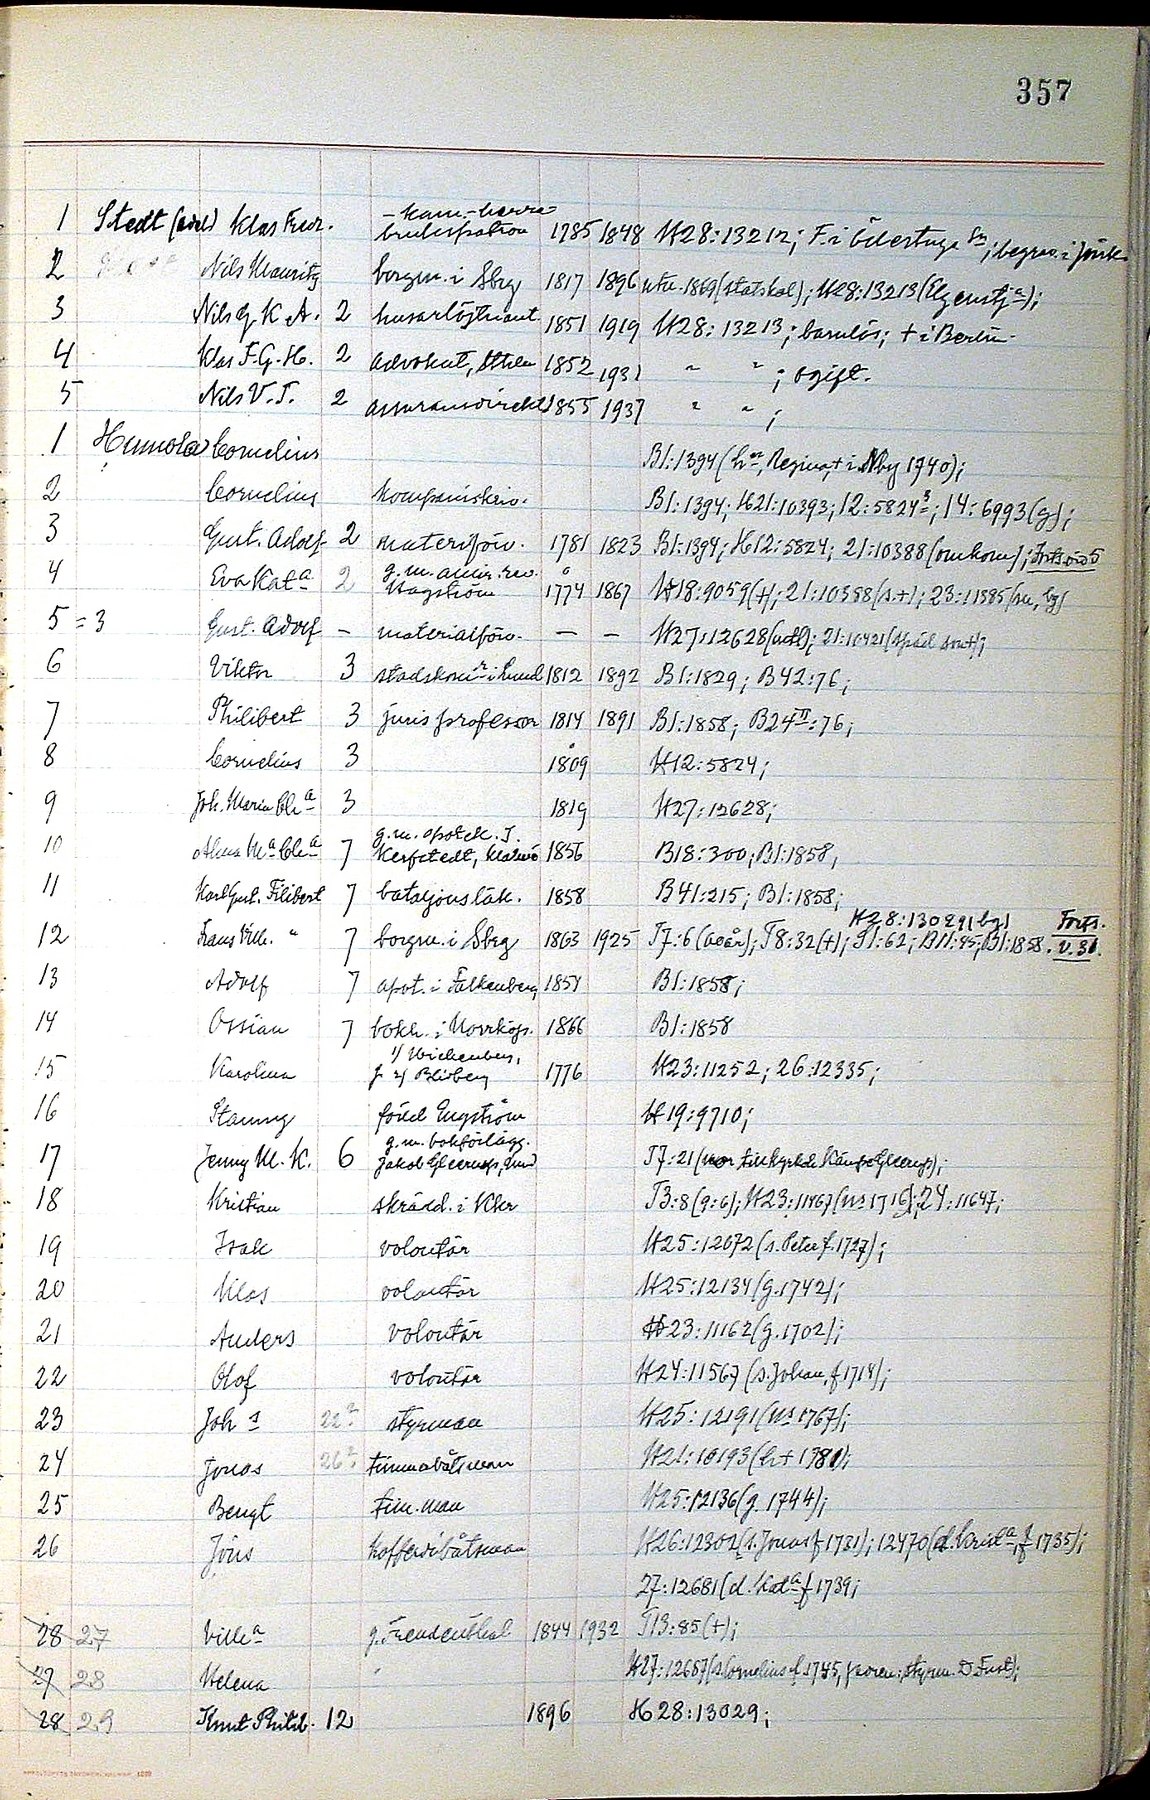 357
1 Stedt (adel) Klas Fredr. - kam.-herre brukspatron 1785 1848 H28:13212; F. i Ödestuga sn; begrav. i Jönk.
2 Nils Mauritz borgm. i Sbg 1817 1896 utv. 1869 (statskal); H28:13213 (Elgenstja);
3 Nils G. K. A. 2 husarlöjtnant 1851 1919 H28:13213; barnlös; + i Berlin.
4 Klas F. G. H. 2 advokat, Sthlm 1852 1931 " " ; ogift.
5 Nils V. T. 2 assuransdirektör 1855 1937 " " ;
1 Humola Cornelius B1:1394 (hn, Regina, + i Nby 1740);
2 Cornelius kompaniskriv. B1:1394; H21:10393; 12:5824; 14:6993 (g);
3 Gust. Adolf 2 materiförv. 1781 1823 B1:1394; H12:5824; 21:10388 (omkom); Forts. vid 5
4 Eva Kata 2 g.m. amir. rev. Hagström 1774 1867 H18:9059 (+); 21:10388 (s. +); 23:11385
5 = 3 Gust. Adolf - materialförv. - - H27:12628 (utfl); 21:10421
6 Viktor 3 stadskomr i Lund 1812 1892 B1:1829; B42:76;
7 Philibert 3 juris professor 1814 1891 B1:1858; B24II:76;
8 Cornelius 3 1809 H12:5824;
9 Joh. Maria Cha 3 1819 H27:12628;
10 Alma Ma Cha 7 g.m. apotek. J. Kerfstedt, Malmö 1856 B18:300; B1:1858;
11 Karl Gust. Filibert 7 bataljonsläk. 1858 B41:215; B1:1858;
H28:13029 (bg) Forts.
12 Frans Vilh. " 7 borgm. i Sbg 1863 1925 T7:6 (60 år); T8:32 (+); T1:62; B11:85; B1:1858. v. 31.
13 Adolf 7 apot. i Falkenberg 1854 B1:1858;
14 Ossian 7 bokh. i Norrköp. 1866 B1:1858
15 Karolina 1/ Wickenberg, f 2/ Blidberg 1776 H23:11252; 26:12335;
16 Stanny född Engström H19:9710;
17 Jenny M. K. 6 g.m. bokförlägg. Jakob Gleerup, Lund T7:21
18 Kristian skrädd. i Kkr T3:8 (9:6); H23:11467 (ns 1716); 24:11647;
19 Isak volontär H25:12072 (s. Peter f. 1727);
20 Klas volontär H25:12134 (g. 1742);
21 Anders volontär H23:11162 (g. 1702);
22 Olof volontär H24:11567 (s. Johan, f 1714);
23 Johs 22? styrman H25:12191 (ns 1767);
24 Jonas 26? timmabåtsman H21:10193 (h + 1781);
25 Bengt tim.man H25:12136 (g. 1744);
26 Jöns kofferdibåtsman H26:12302 (s. Jonas f 1731); 12470 (d. Krista, f 1735);
27:12681 (d. Kata f 1739;
28 27 Villa g. Freudenthal 1844 1932 T13:85 (+);
27 28 Helena " H27:12657 (s. Cornelius f 1745,
28 29 Knut Philib. 12 1896 H28:13029;